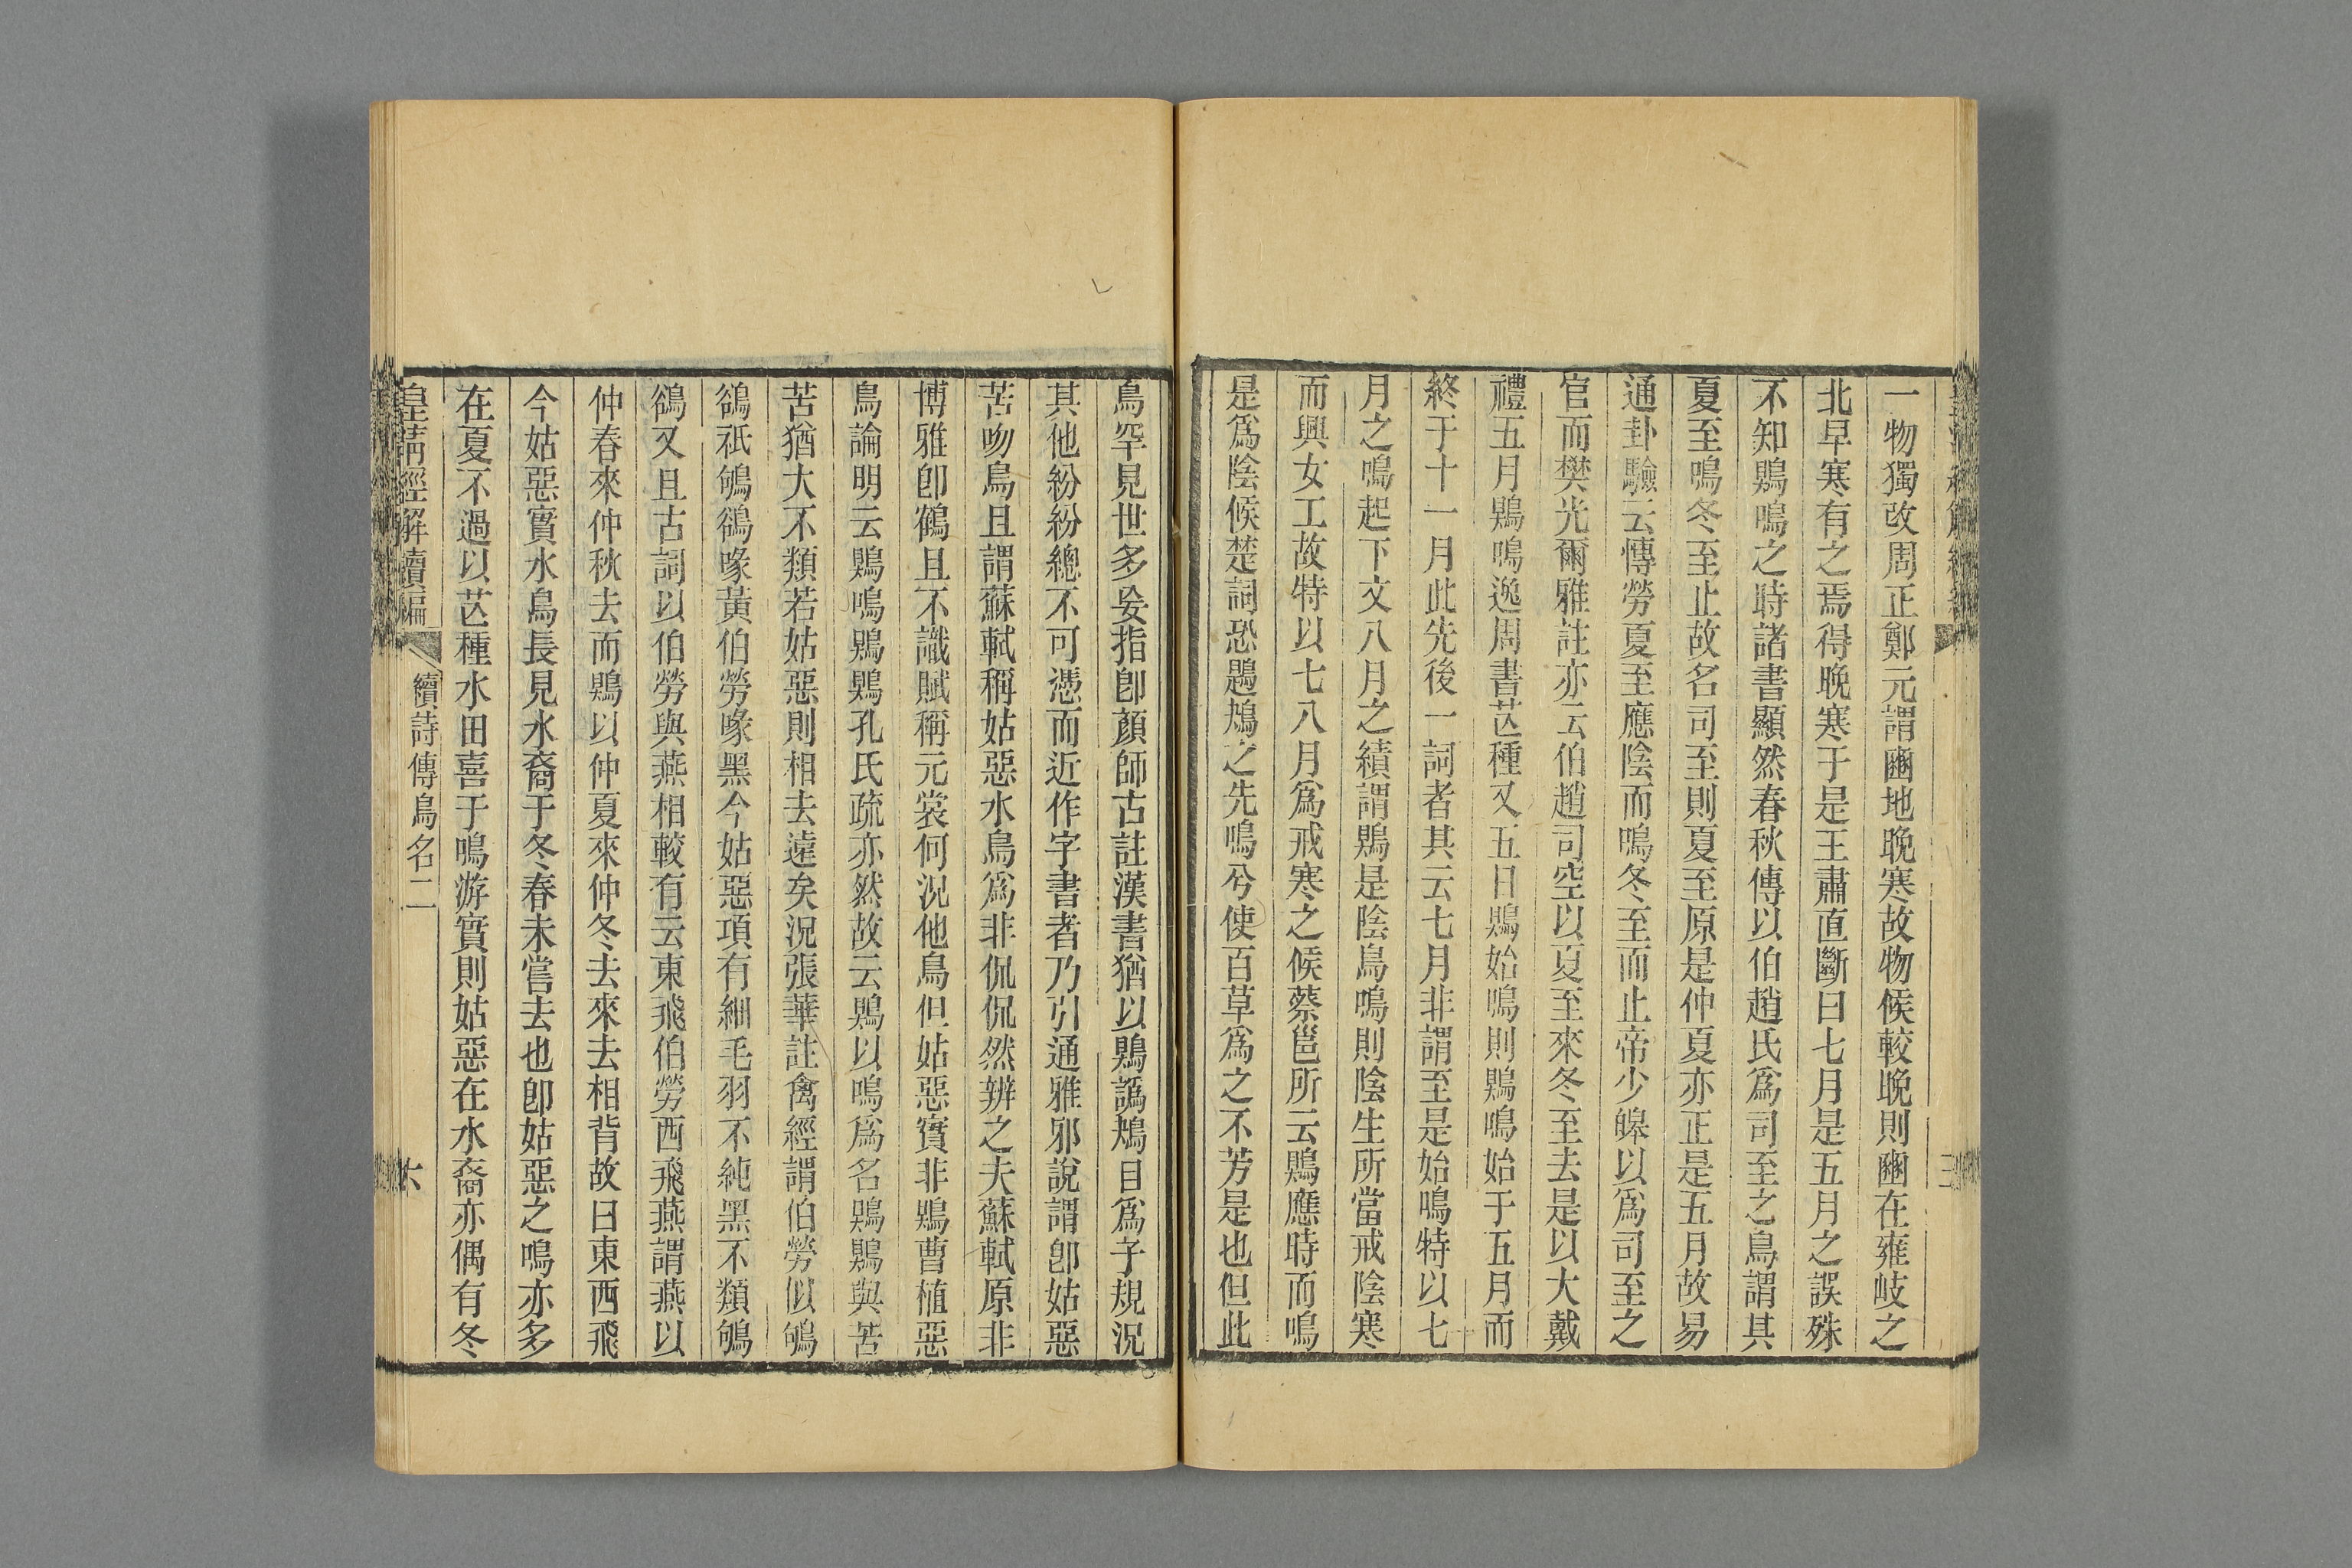 一物獨改周正鄭元謂豳地晚寒故物候較晚則豳在雍岐之
北早寒有之焉得晚寒于是王肅直斷曰七月是五月之誤殊
不知鵙鳴之時諸書顯然春秋傳以伯趙氏爲司至之鳥謂其
夏至鳴冬至止故名司至則夏至原是仲夏亦正是五月故易
通卦驗云慱勞夏至應陰而鳴冬至而止帝少皞以爲司至之
官而樊光爾雅註亦云伯趙司空以夏至來冬至去是以大戴
禮五月鵙鳴逸周書芒種又五日鵙始鳴則鵙鳴始于五月而
終于十一月此先後一詞者其云七月非謂至是始鳴特以七
月之鳴起下文八月之績謂鵙是陰鳥鳴則陰生所當戒陰寒
而興女工故特以七八月爲戒寒之候蔡邕所云鵙應時而鳴
是爲陰候楚詞恐鶗鴂之先鳴兮使百草爲之不芳是也但此
鳥罕見世多妄指卽顏師古註漢書猶以鵙譌鴂目爲子規況
其他紛紛總不可憑而近作字書者乃引通雅邪說謂卽姑惡
苦吻鳥且謂蘇軾稱姑惡水鳥爲非侃侃然辨之夫蘇軾原非
博雅卽鶴且不識賦稱元裳何況他鳥但姑惡實非鵙曹植惡
鳥論明云鵙鳴鵙鵙孔氏疏亦然故云鵙以鳴爲名鵙鵙與苦
苦猶大不類若姑惡則相去遠矣況張華註禽經謂伯勞似鴝
鵒祇鴝鵒喙黃伯勞喙黑今姑惡項有細毛羽不純黑不類鴝
鵒又且古詞以伯勞與燕相較有云東飛伯勞西飛燕謂燕以
仲春來仲秋去而鵙以仲夏來仲冬去來去相背故曰東西飛
今姑惡實水鳥長見水裔于冬春未嘗去也卽姑惡之鳴亦多
在夏不過以芒種水田喜于鳴游實則姑惡在水裔亦偶有冬
皇清經解續編
續詩傳鳥名二
六